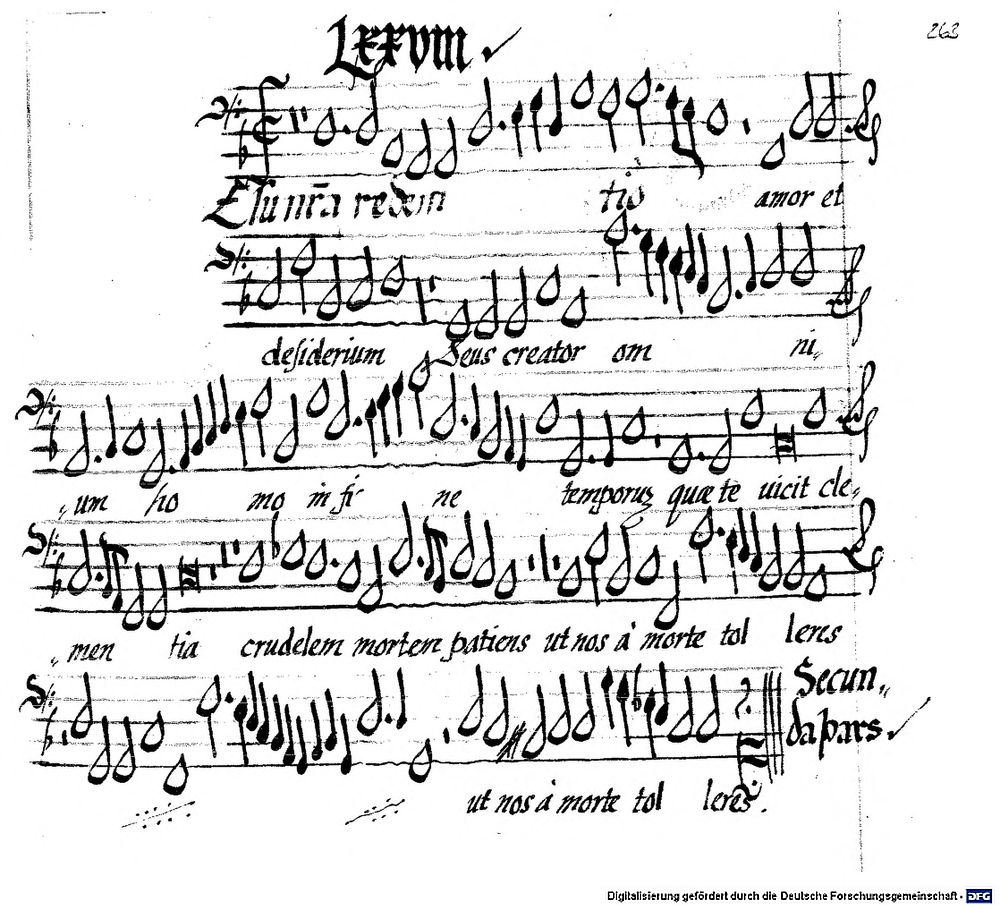 Lxxviii
263
Esu nr̄a redem tiō amor et
desiderium Deus creator om ni„
„um ho mo in fi ne temporuȝ quæ te uicit cle„
„men tia crudelem mortem patiens ut nos à morte tol leres
Secun„
da pars
ut nos à morte tol leres.
Digitalisierung gefördert durch die Deutsche Forschungsgemeinschaft - DFG